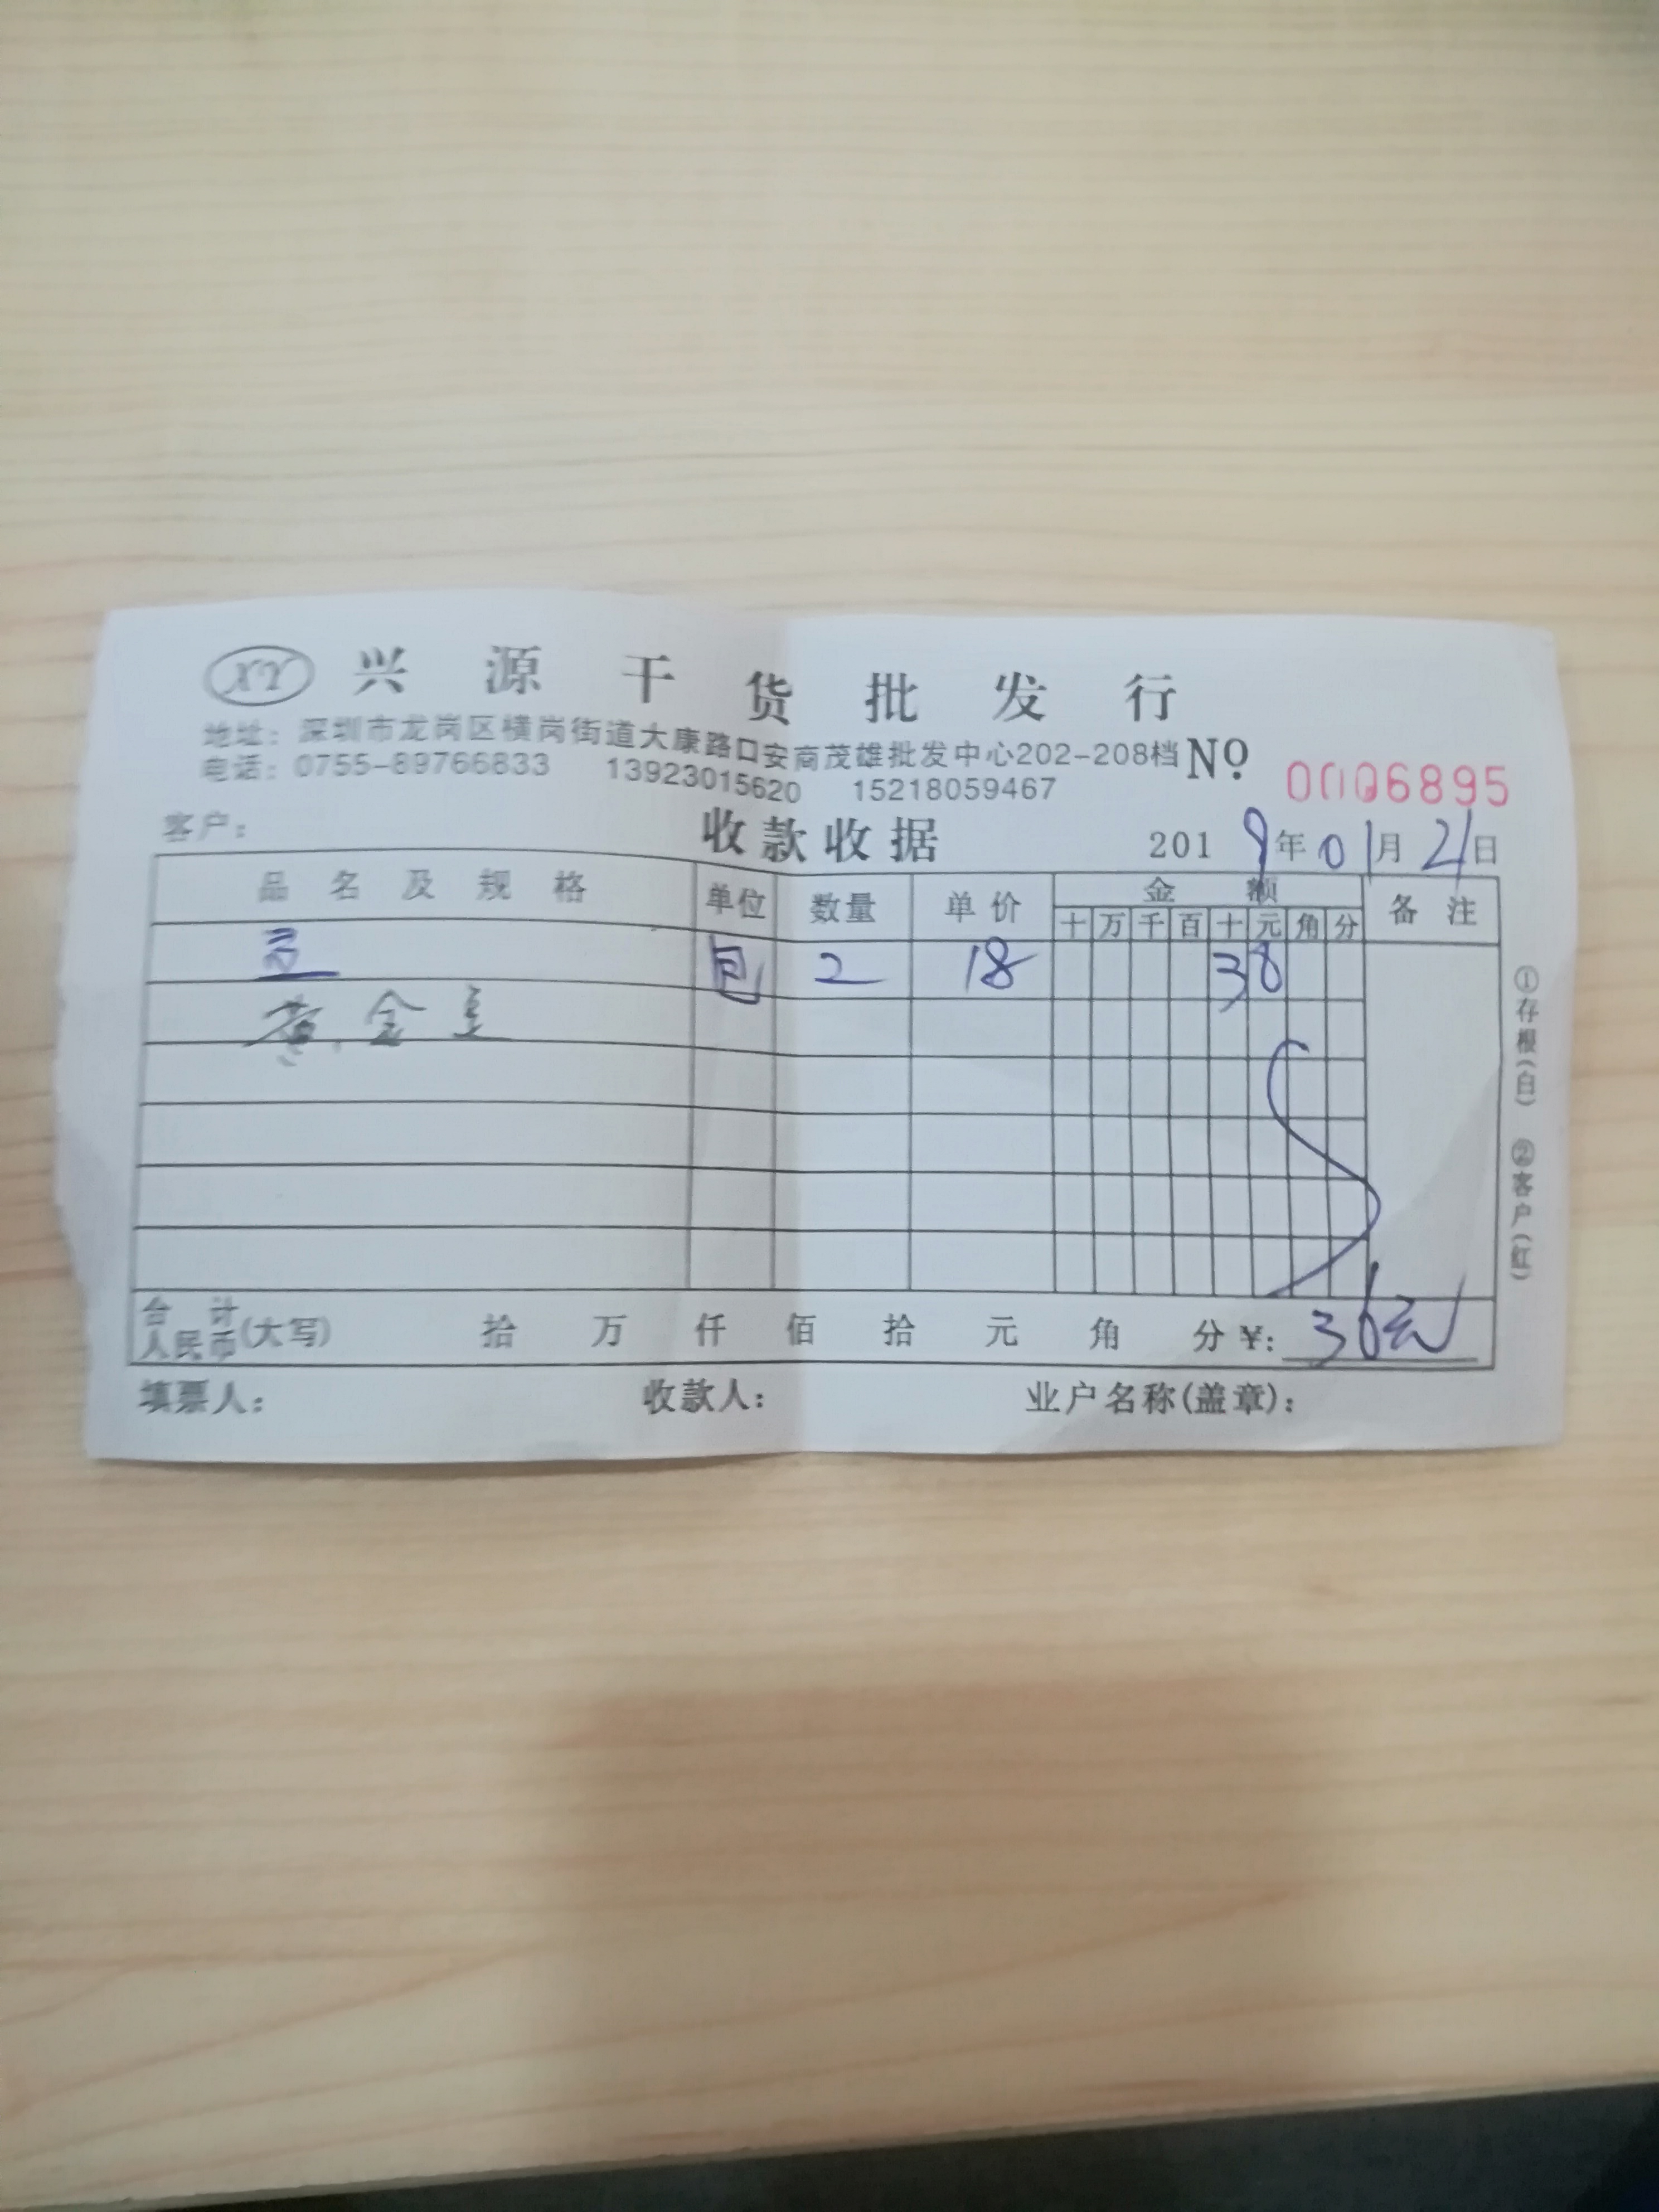 XY 兴源干货批发行
地址：深圳市龙岗区横岗街道大康路口安商茂雄批发中心202-208档
电话：0755-89766833 13923015620 15218059467
No 0006895
客户： 收款收据 2019年01月21日
品名及规格 单位 数量 单价 金额 备注
十 万 千 百 十 元 角 分
豆 包 2 18 36
黄金豆
合计人民币(大写) 拾 万 仟 佰 拾 元 角 分 ¥：36元
填票人： 收款人： 业户名称(盖章)：
①存根(白) ②客户(红)